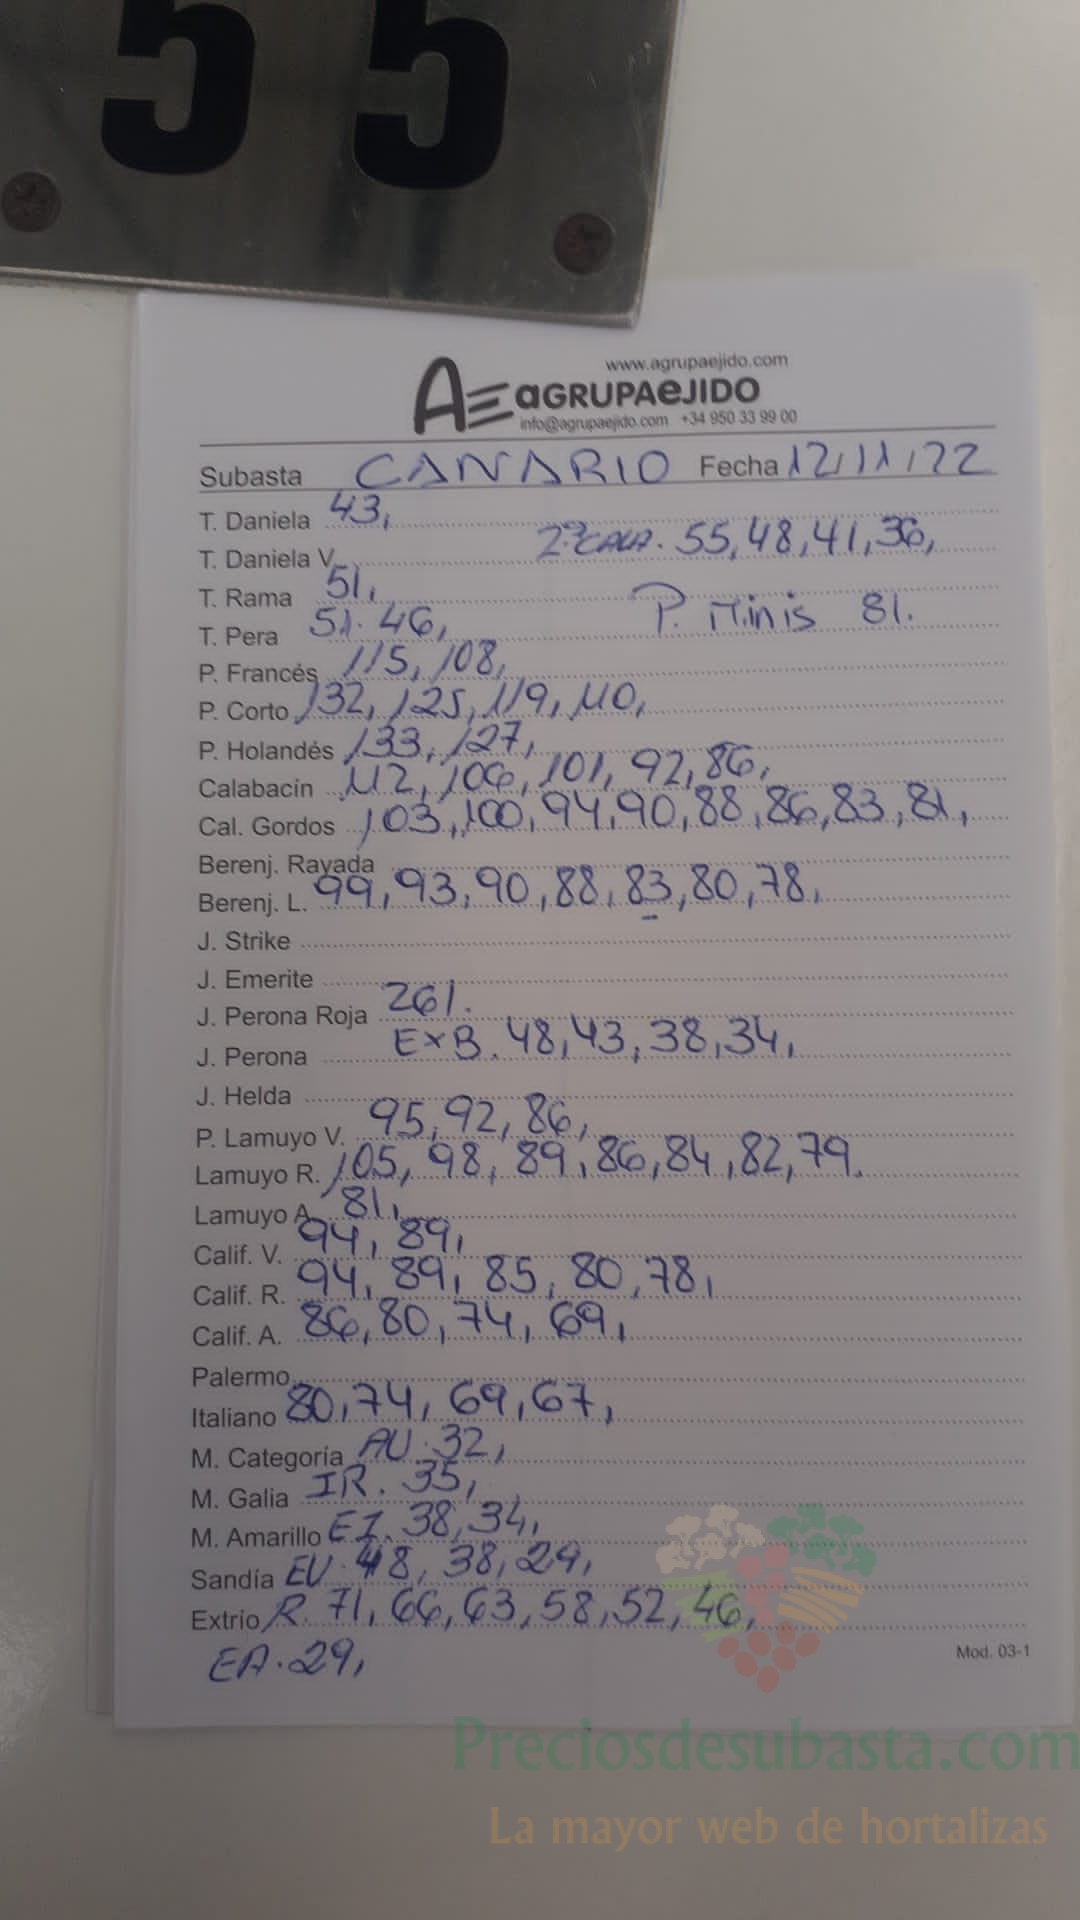 55
www.agrupaejido.com
AE aGRUPAeJIDO
info@agrupaejido.com +34 950 33 99 00
Subasta CANARIO Fecha 12/11/22
T. Daniela 43,
2ª CALA. 55,48,41,36,
T. Daniela V.
T. Rama 51,
P. Minis 81.
T. Pera 51. 46,
P. Francés 115, 108,
P. Corto 132, 125, 119, 110,
P. Holandés 133, 127,
Calabacín 112, 106, 101, 92, 86,
Cal. Gordos 103, 100, 94, 90, 88, 86, 83, 81,
Berenj. Rayada
Berenj. L. 99, 93, 90, 88, 83, 80, 78,
J. Strike
J. Emerite
J. Perona Roja 261.
J. Perona ExB. 48, 43, 38, 34,
J. Helda
P. Lamuyo V. 95, 92, 86,
Lamuyo R. 105, 98, 89, 86, 84, 82, 79.
Lamuyo A. 81,
Calif. V. 94, 89,
Calif. R. 94, 89, 85, 80, 78,
Calif. A. 86, 80, 74, 69,
Palermo
Italiano 80, 74, 69, 67,
M. Categoría AU. 32,
M. Galia IR. 35,
M. Amarillo EI. 38, 34,
Sandía EV. 48, 38, 29,
Extrio R. 71, 66, 63, 58, 52, 46,
EA. 29,
Mod. 03-1
Preciosdesubasta.com
La mayor web de hortalizas